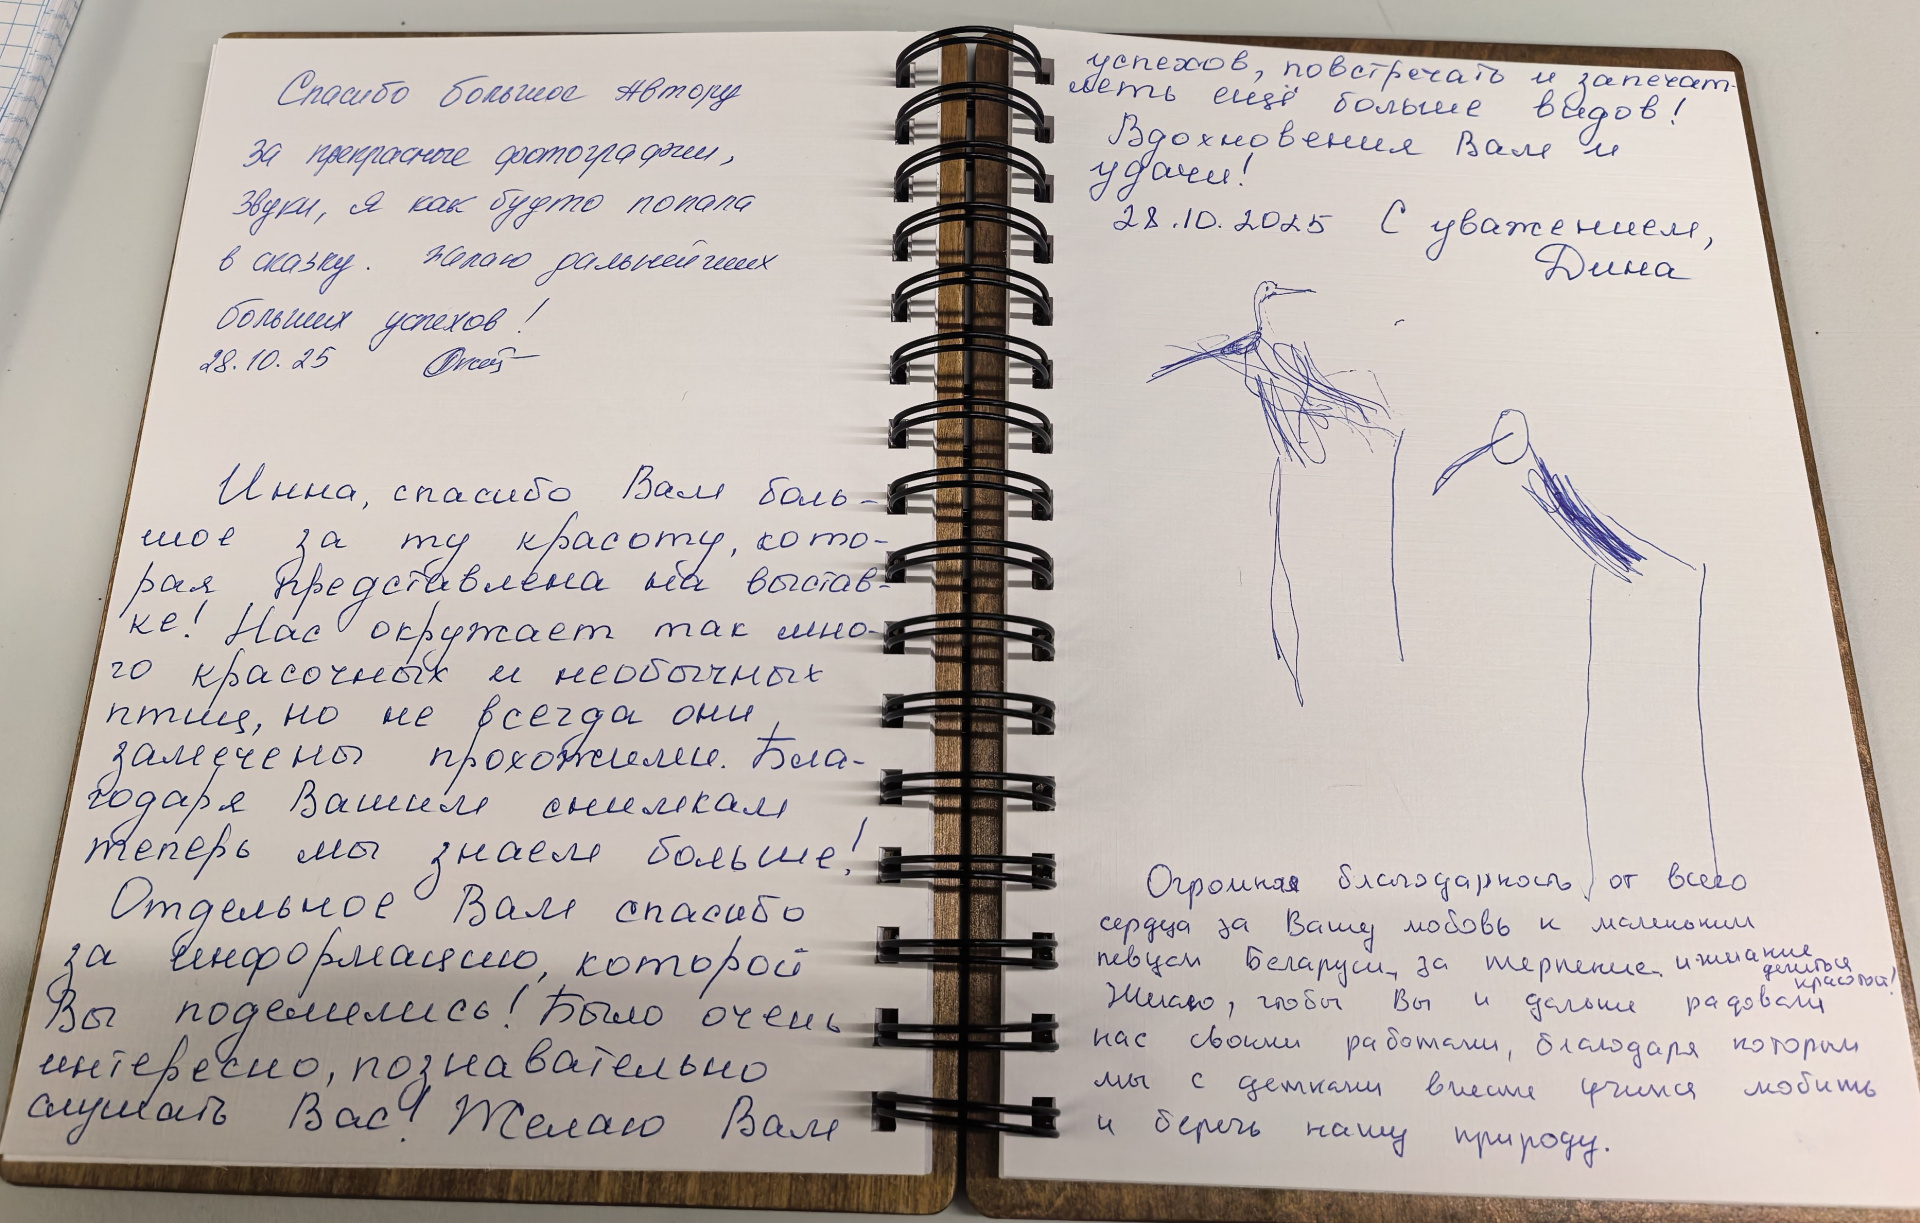 Спасибо большое Автору
за прекрасные фотографии,
звуки, я как будто попала
в сказку. Желаю дальнейших
больших успехов!
28.10.25
Инна, спасибо Вам боль-
шое за ту красоту, кото-
рая представлена на выстав-
ке! Нас окружает так мно-
го красочных и необычных
птиц, но не всегда они
замечены прохожими. Бла-
годаря Вашим снимкам
теперь мы знаем больше!
Отдельное Вам спасибо
за информацию, которой
Вы поделились! Было очень
интересно, познавательно
слушать Вас! Желаю Вам
успехов, повстречать и запечат-
леть ещё больше видов!
Вдохновения Вам и
удачи!
28.10.2025 С уважением,
Дина
Огромная благодарность от всего
сердца за Вашу любовь к маленьким
певцам Беларуси, за терпение и желание
делиться
красотой!
Желаю, чтобы Вы и дальше радовали
нас своими работами, благодаря которым
мы с детками вместе учимся любить
и беречь нашу природу.